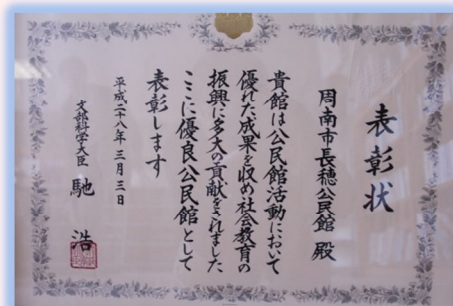 表彰状
周南市長穂公民館 殿
貴館は公民館活動において
優れた成果を収め社会教育の
振興に多大の貢献をされました
ここに優良公民館として
表彰します
平成二十八年三月三日
文部科学大臣 馳 浩